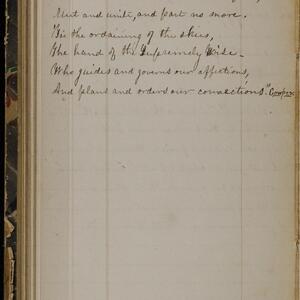 Meet and unite, and part no more.
'Tis the ordaining of the skies,
The hand of the Supremely Wise -
Who guides and governs our affections,
And plans and orders our connections." Cowper